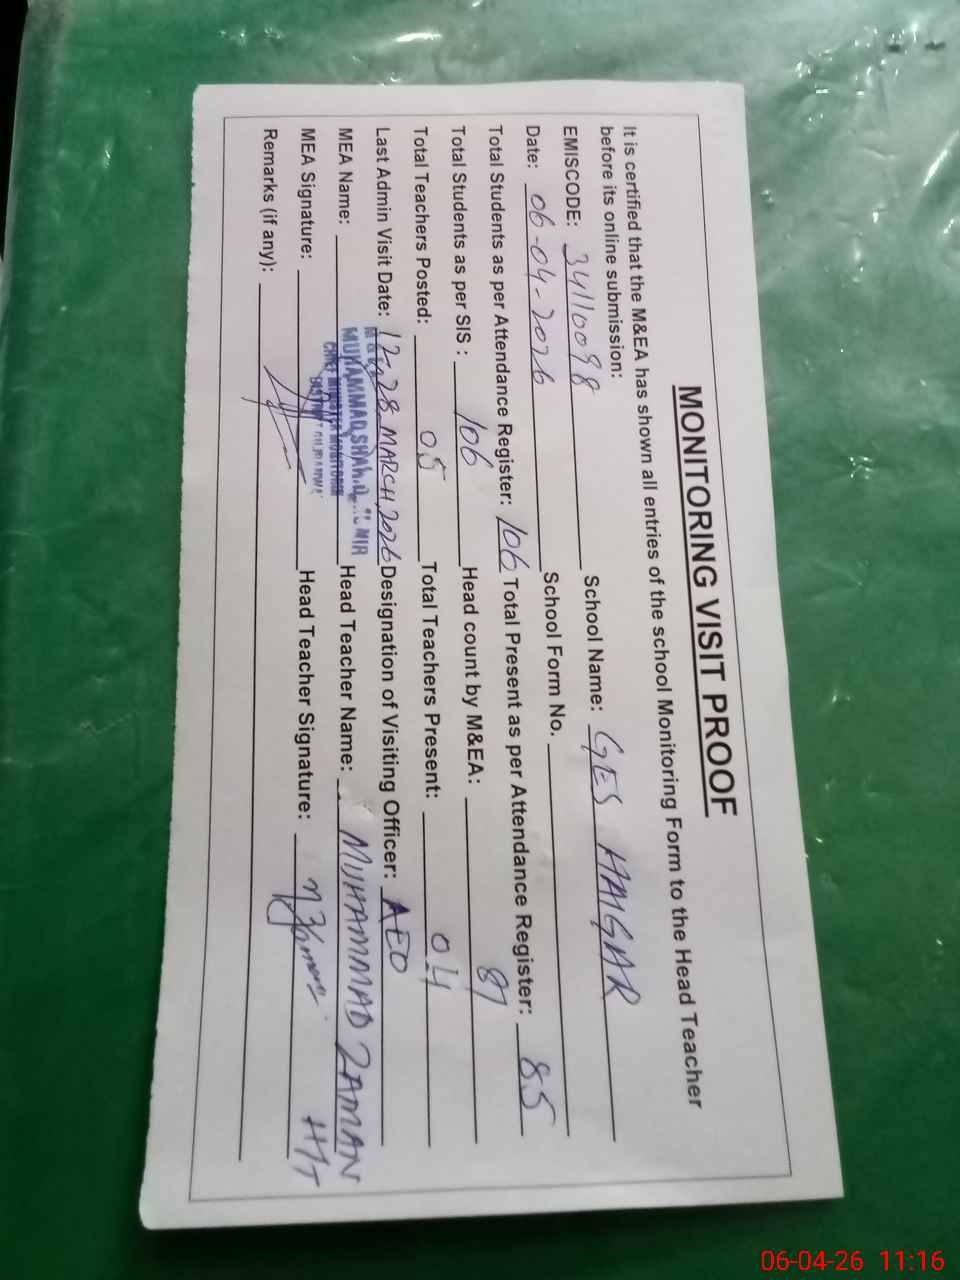 MONITORING VISIT PROOF
It is certified that the M&EA has shown all entries of the school Monitoring Form to the Head Teacher
before its online submission:
EMISCODE: 34110098 School Name: GES HAIGAR
Date: 06-04-2026 School Form No.
Total Students as per Attendance Register: 106 Total Present as per Attendance Register: 85
Total Students as per SIS : 106 Head count by M&EA: 87
Total Teachers Posted: 05 Total Teachers Present: 04
Last Admin Visit Date: 12,28, MARCH, 2026 Designation of Visiting Officer: AEO
MEA Name: MUHAMMAD Head Teacher Name: MUHAMMAD ZAMAN
MEA Signature: Head Teacher Signature: HT
Remarks (if any):
06-04-26 11:16